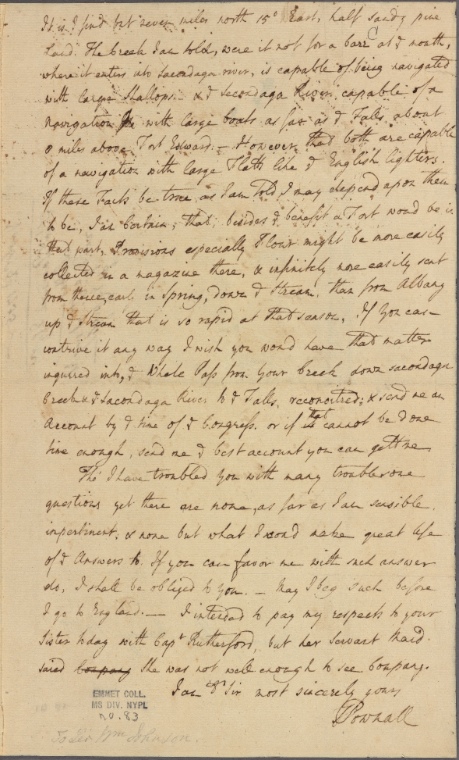 It is I find but seven miles north 15° East, half sandy pine
Land. The Creek I am told, were it not for a barr at yͤ mouth,
where it enters into Sacondaga river, is capable of being navigated
with large Shallops. & yͤ Sacondaga River capable of a
navigation with large boats as far as yͤ Falls about
8 miles above Fort Edward. – However that both are capable
of a navigation with large Flatts like yͤ English lighters.
If these Facts be true as I am told I may depend upon them
to be, I am Certain, that, besides yͤ benefit a Fort woud be in
that part, Provisions especially Flour might be more easily
collected in a magazine there, & infinitely more easily sent
from thence, early in Spring, down yͤ Stream, than from Albany
up yͤ Stream that is so rapid at that season. If You can
contrive it any way I wish you woud have that matter
inquired into, & yͤ Whole Pass from Your Creek down Secondaga
Creek & yͤ Sacondaga River to yͤ Falls, reconoitred; & send me an
Account by yͤ time of yͤ Congress. or if that cannot be done
time enough, send me yͤ best account you can gett me
Tho' I have troubled You with many troublesome
questions yet there are none, as far as I am sensible,
impertinent, & none but what I woud make great Use
of yͤ Answers to. If you can favor me with such answer
do, I shall be obliged to you. – May I beg such before
I go to England. – I intended to pay my respects to your
Sister today with Capᵗ Rutherford, but her Servant Maid
said Company She was not well enough to see Company.
I am Dʳ Sir most sincerely yours
TPownall
EMMET COLL.
MS DIV. NYPL
no. 83
To Sir Wm Johnson.